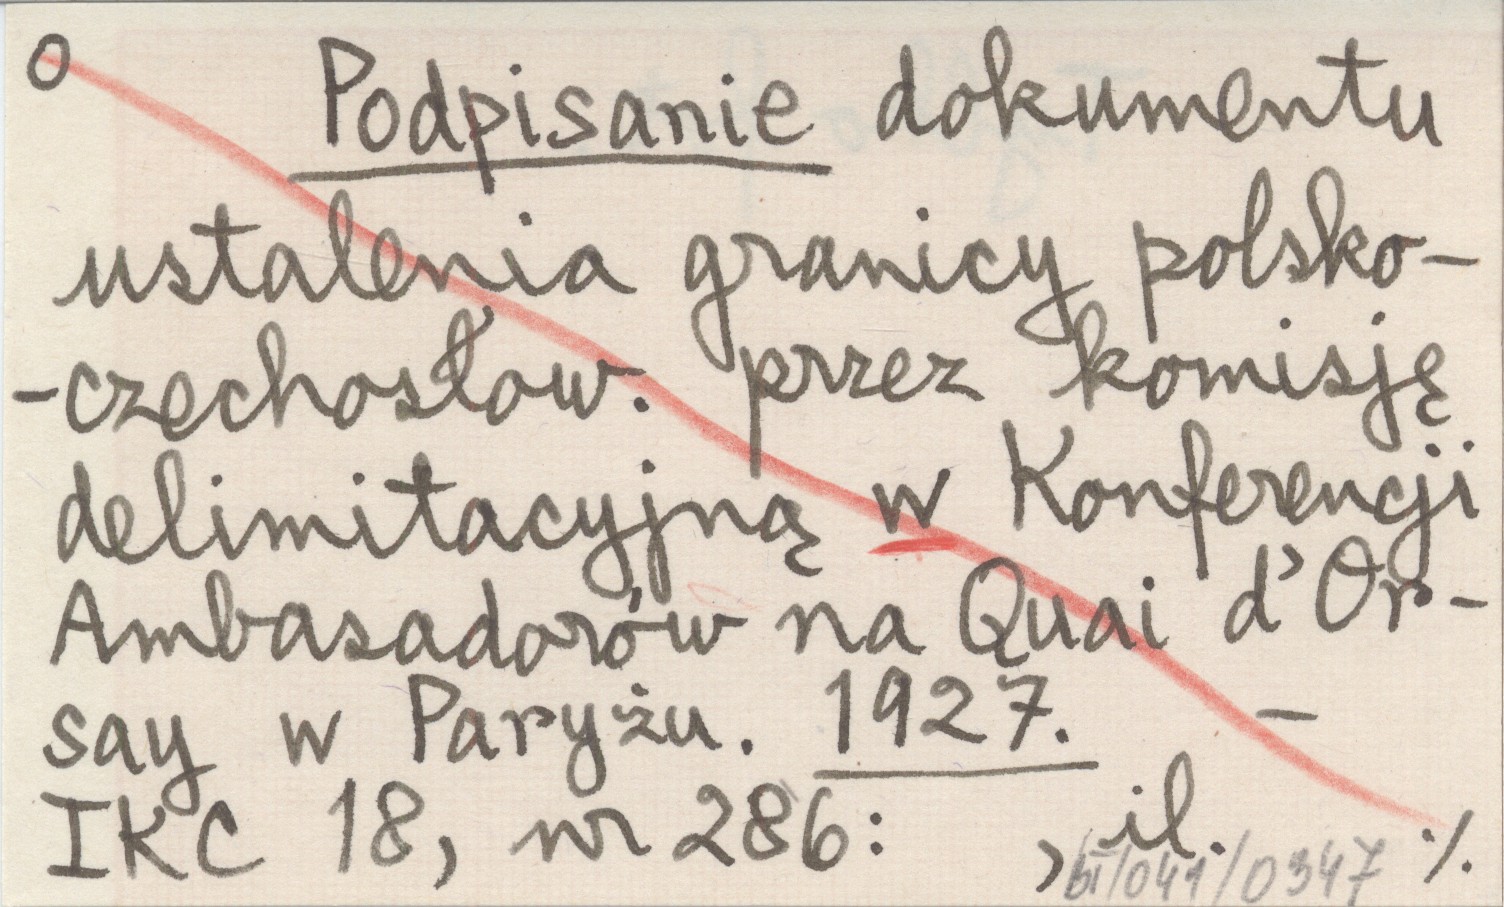 o Podpisanie dokumentu
ustalenia granicy polsko-
-czechosłow. przez komisję
delimitacyjną w Konferencji
Ambasadorów na Quai d'Or-
say w Paryżu. 1927. –
IKC 18, nr 286: , il. ./.
BI/041/0347